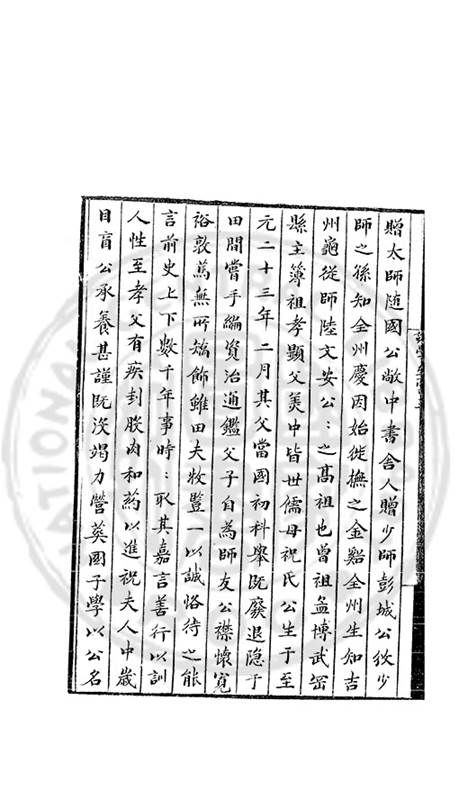 贈太師随國公敞中書舍人贈少師彭城公攽少
師之孫知全州慶因始徙撫之金谿全州生知吉
州滮從師陸文安公〻之髙祖也曾祖孟博武岡
縣主簿祖孝顯父羙中皆世儒母祝氏公生于至
元二十三年二月其父當國初科舉既廢退隐于
田間嘗手編資治通鑑父子自為師友公襟懷寛
裕敦篤無所矯飾雖田夫牧豎一以誠恪待之能
言前史上下数千年事時〻取其嘉言善行以訓
人性至孝父有疾刲股肉和薬以進祝夫人中歳
目盲公承養甚謹既沒竭力營葬國子學以公名